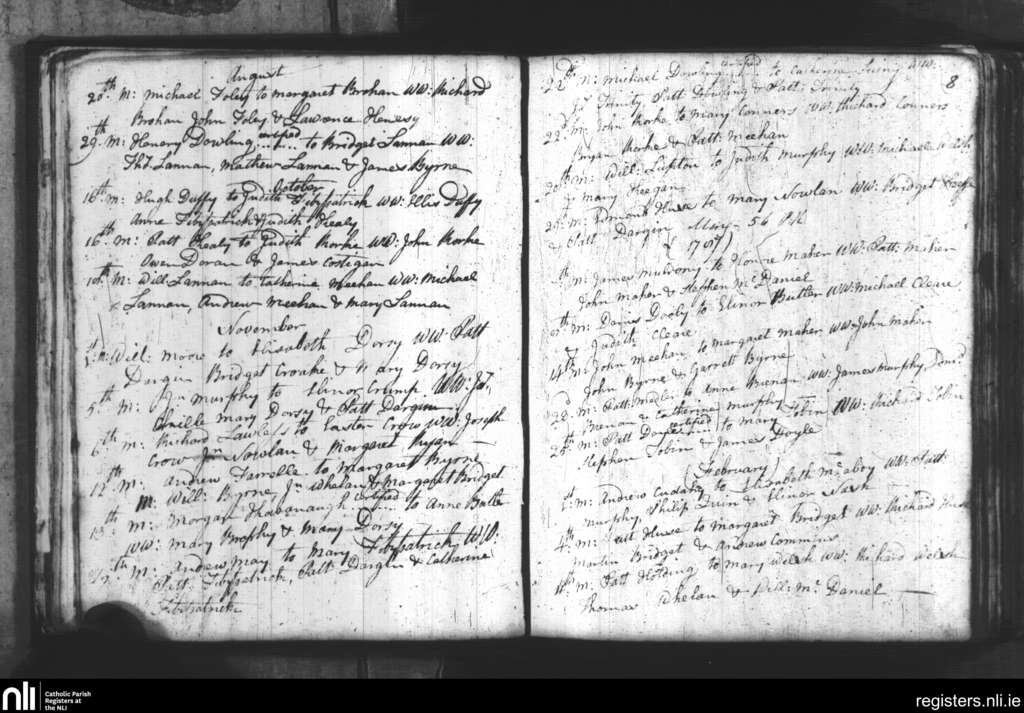 August
20th M: Michael Foley to Margaret Brohan WW: Richard
Brohan John Foley & Lawrence Henesy
29th M: Henery Dowling certified to Bridget Lannan WW:
Ths. Lannan, Mathew Lannan & James Byrne
October
16th M: Hugh Duffy to Judith Fitzpatrick WW: Ellis Duffy
Anne Fitzpatrick & Judith Healy
16th M: Patt Healy to Judith Rorke WW: John Rorke
Owen Doran & James Costigan
10th M: Will Lannan to Catherine Meehan WW: Michael
Lannan, Andrew Meehan & Mary Lannan
November
1st M: Will: Moore to Elisabeth Dorsy WW: Patt
Dargin Bridget Croake & Mary Dorsy
5th M: Jn Murphy to Elinor Crump WW: Js.
Mary Dorsy & Patt Dargin
6th M: Richard Lawless to Easter Crow WW: Joseph
Crow Jn Nowlan & Margaret Ryan
12th M: Andrew Farrelle to Margaret Byrne
WW: Will: Byrne, Jn Whelan & Margaret Bridget
13th M: Morgan Khavanaugh certified to Anne Butler
WW: Mary Brophy & Mary Dorsy
th M: Andrew May to Mary Fitzpatrick WW:
Patt Fitzpatrick, Patt Dargin & Catharine
Fitzpatrick
8
22th M: Michael Dowling certified to Catherine WW:
Js. Trinity, Patt Dowling & Patt: Trinity
22th M: John Rorke to Mary Connors WW: Richard Connors
Bryan Rorke & Patt: Meehan
M: Will: to Judith Murphy WW: Michael Walsh
& Mary Keegan
29th M: Edmond to Mary Nowlan WW: Bridget Keeffe
& Patt Dargin
(1797)
th M: James Muldony to Honre Maher WW: Patt: Maher
John Maher & Stephen Mc Daniel
th M: Daniel Dooly to Elinor Butler WW: Michael Cleare
& Judith Cleare
14th M: John Meehan to Margaret Maher WW: John Maher
John Byrne & Garrett Byrne
22: M: Patt: to Anne Brenan WW: James Murphy,
Brenan & Catherine Murphy
25th M: Patt Doyle certified to Mary Tobin WW: Richard Tobin
Stephen Tobin & James Doyle
(February)
1st M: Andrew Cudahy to Elisabeth WW: Patt:
Murphy, Philip Quin & Elinor Nash
4th M: to Margaret Bridget WW: Richard
Martin Bridget & Andrew Commins
M: Patt Holding to Mary Welsh WW: Richard Welsh
Thomas Phelan & Will: Mc Daniel
nli
Catholic Parish
Registers at
the NLI
registers.nli.ie